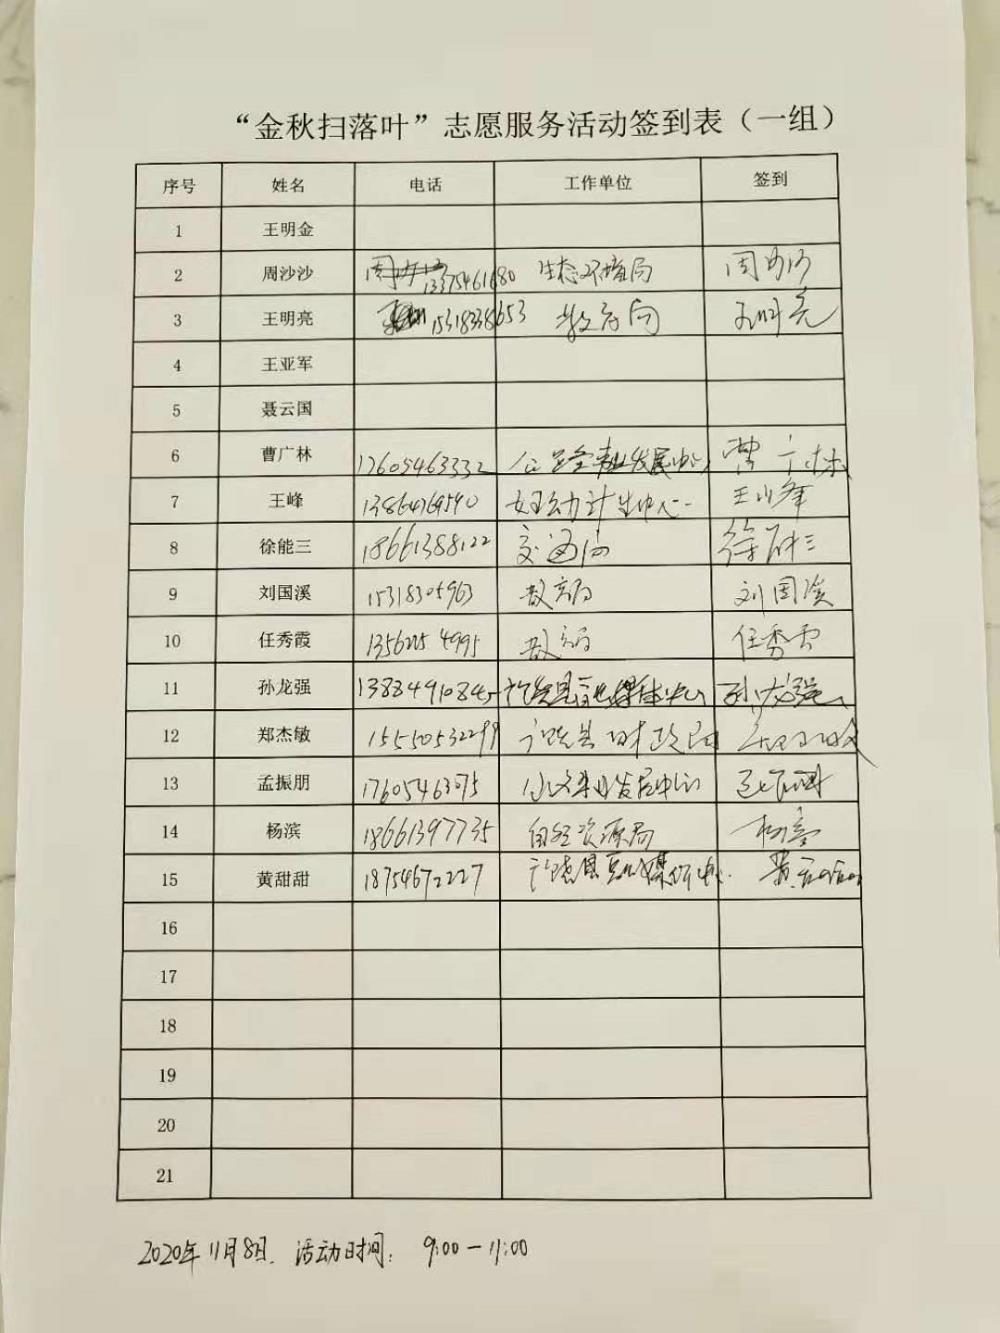 “金秋扫落叶”志愿服务活动签到表（一组）
序号 姓名 电话 工作单位 签到
1 王明金
2 周沙沙 13375461680 生态环境局 周沙沙
3 王明亮 15318338653 教育局 王明亮
4 王亚军
5 聂云国
6 曹广林 17605463332 曹广林
7 王峰 妇幼计生中心 王峰
8 徐能三 18661388122 交通局 徐能三
9 刘国溪 15318305963 教育局 刘国溪
10 任秀霞 教育局 任秀霞
11 孙龙强 孙龙强
12 郑杰敏 15550532299 财政局
13 孟振朋 17605463075
14 杨滨 18661397735 自然资源局 杨滨
15 黄甜甜 18754672227 黄甜甜
16
17
18
19
20
21
2020年11月8日. 活动时间: 9:00-11:00